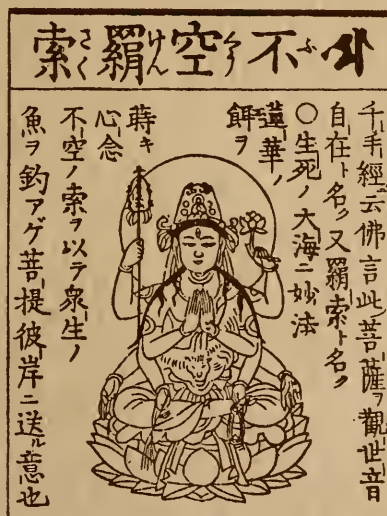 不空羂索
ふくうけんさく
千手經ニ云佛言此菩薩ヲ觀世音
自在ト名ク又羂索ト名ク
〇生死ノ大海ニ妙法
蓮華ノ
餌ヲ
蒔キ
心念
不空ノ索ヲ以テ衆生ノ
魚ヲ釣アゲ菩提彼岸ニ送ル意也